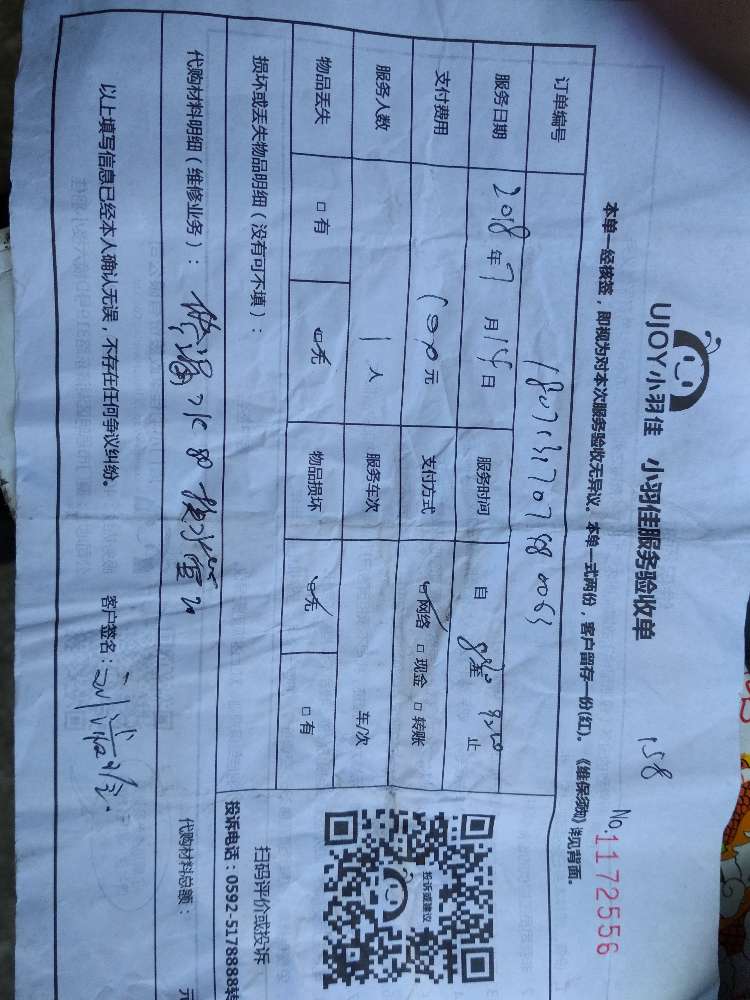 158
UJOY小羽佳 小羽佳服务验收单
No.1172556
本单一经核签，即视为对本次服务验收无异议。本单一式两份，客户留存一份(红)。《维保须知》详见背面。
订单编号
服务日期 2018年7月15日 服务时间 自 至 止
支付费用 元 支付方式 网络 □现金 □转账
服务人数 1人 服务车次 车/次
物品丢失 □有 无 物品损坏 无 □有
损坏或丢失物品明细（没有可不填）：
代购材料明细（维修业务）：
代购材料总额： 元
以上填写信息已经本人确认无误，不存在任何争议纠纷。 客户签名：
投诉或建议
扫码评价或投诉
投诉电话：0592-5178888转